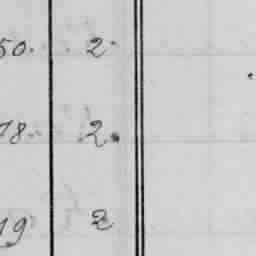 50. 2.
78. 2.
19 2